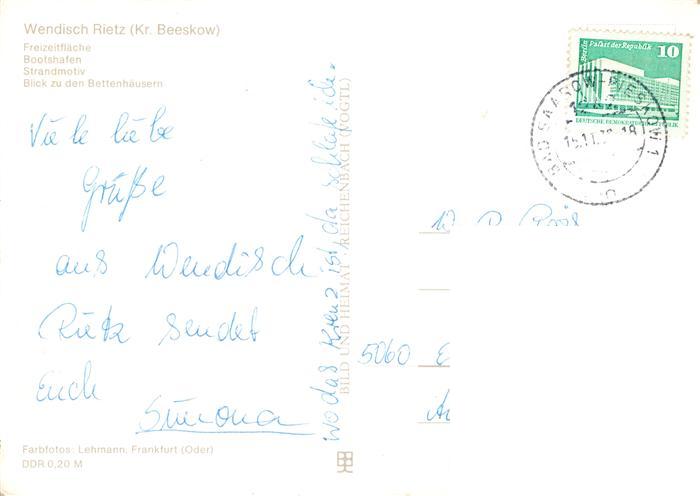 Wendisch Rietz (Kr. Beeskow)
Freizeitfläche
Bootshafen
Strandmotiv
Blick zu den Bettenhäusern
Viele liebe
Grüße
aus Wendisch
Rietz sendet
Euch
Simona
wo das Kreuz ist, da schlafe ich.
BILD UND HEIMAT · REICHENBACH (VOGTL)
Berlin Palast der Republik 10
DEUTSCHE DEMOKRATISCHE REPUBLIK
BAD SAAROW-PIESKOW 1
5060 E
Farbfotos: Lehmann, Frankfurt (Oder)
DDR 0,20 M